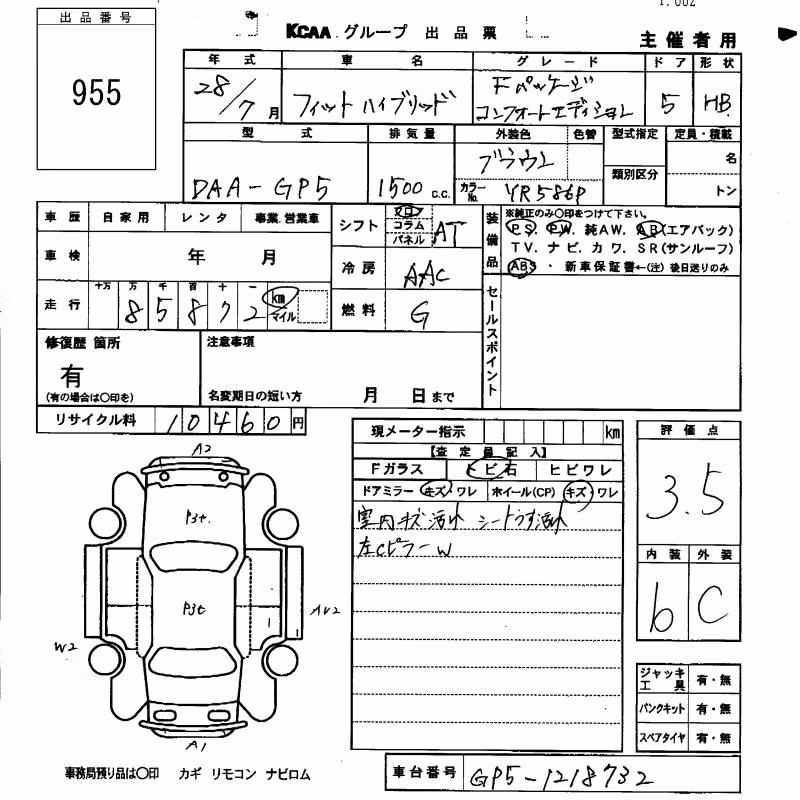 出品番号
955
KCAA グループ 出品票
主催者用
年式 車名 グレード ドア 形状
28/7月 フィット ハイブリッド Fパッケージ コンフォートエディション 5 HB
型式 排気量 外装色 色替 型式指定 定員・積載
DAA-GP5 1500 c.c. ブラウン 類別区分 名
カラーNo. YR586P トン
車歴 自家用 レンタ 事業.営業車
シフト フロア コラム パネル AT
車検 年 月
冷房 AAC
走行 十万 万 千 百 十 一
85872 km マイル
燃料 G
装備品
※純正のみ○印をつけて下さい。
PS. PW. 純AW. AB(エアバック)
TV. ナビ. カワ. SR(サンルーフ)
ABS ・ 新車保証書←(注) 後日送りのみ
セールスポイント
修復歴 箇所 注意事項
有
(有の場合は○印を) 名変期日の短い方 月 日まで
リサイクル料 10460円
現メーター指示 km
【査定員記入】
Fガラス トビ石 ヒビワレ
ドアミラー キズ・ワレ ホイール(CP) キズ・ワレ
室内キズ 汚れ シートうす汚れ
左Cピラー W
評価点
3.5
内装 外装
b C
A2
P3t.
P3t
AU2
W2
A1
ジャッキ工具 有・無
パンクキット 有・無
スペアタイヤ 有・無
事務局預り品は○印 カギ リモコン ナビロム
車台番号 GP5-1218732